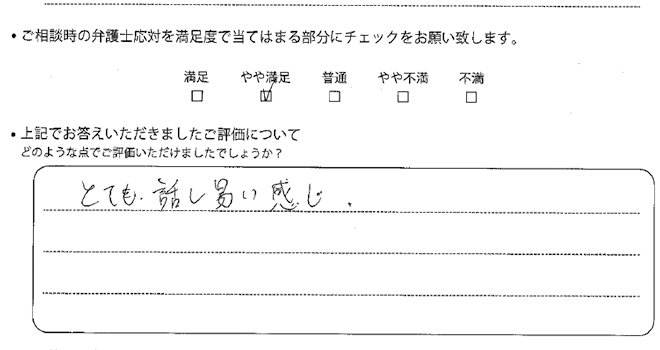 ・ご相談時の弁護士応対を満足度で当てはまる部分にチェックをお願い致します。
満足 やや満足 普通 やや不満 不満
□ ☑ □ □ □
・上記でお答えいただきましたご評価について
どのような点でご評価いただけましたでしょうか？
とても話し易い感じ.